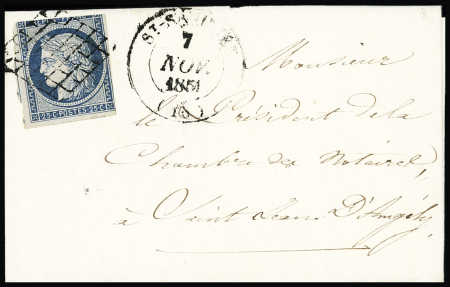 REPUB FRANC
25 C POSTES 25 C
ST-SA
7
NOV.
1851
(16)
Monsieur
le Président de la
Chambre des Notaires,
à Saint Jean D'Angély